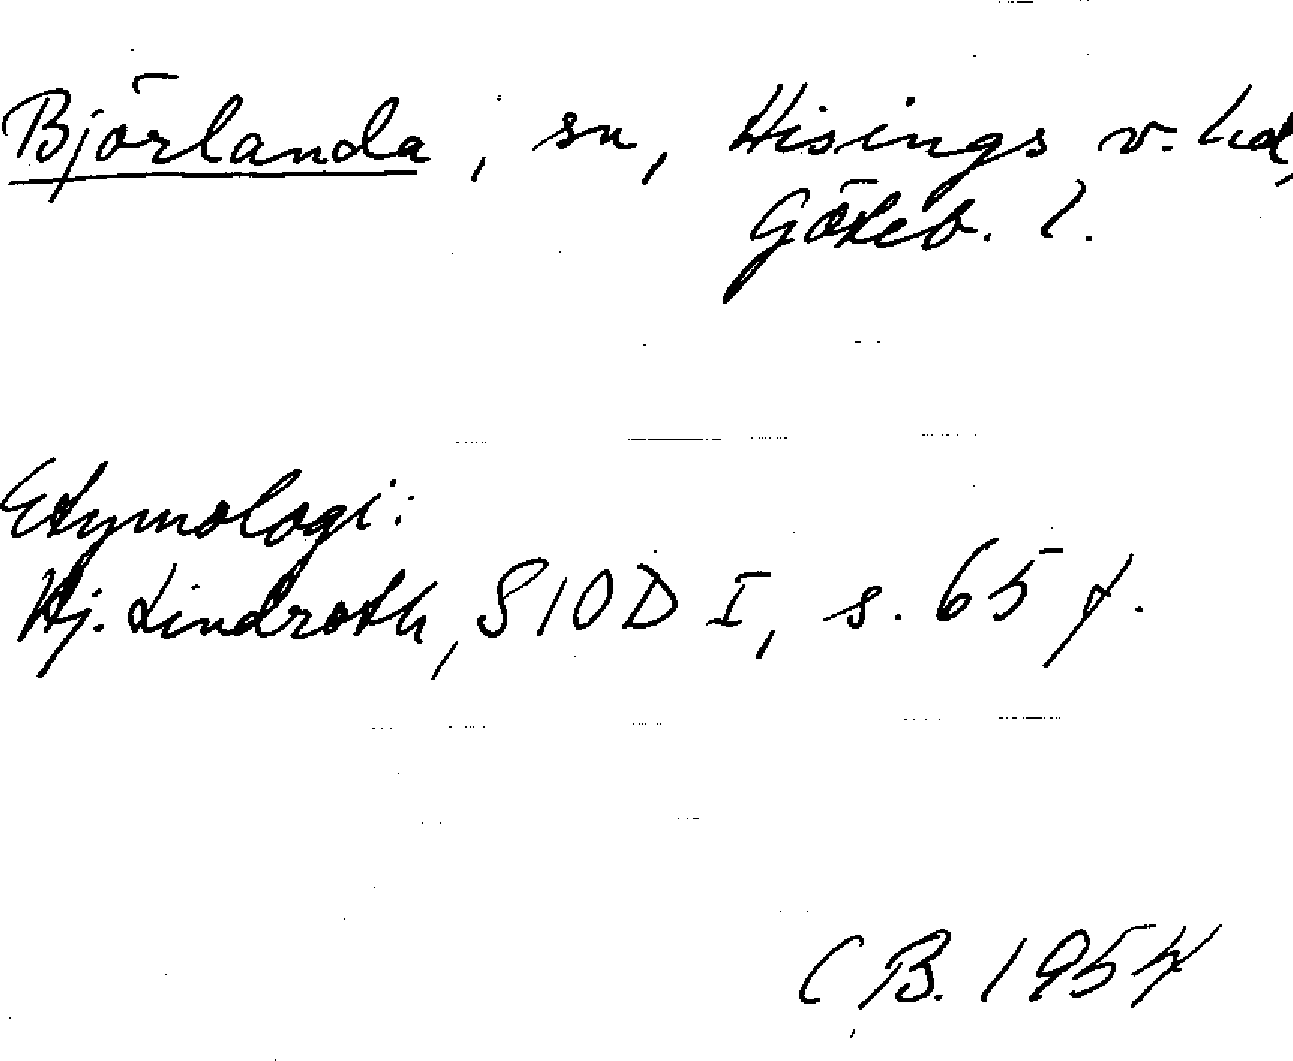 Björlanda, sn, Hisings v. hd,
Göteb. l.
Etymologi:
Hj. Lindroth, SIOD I, s. 65 f.
CB. 1954